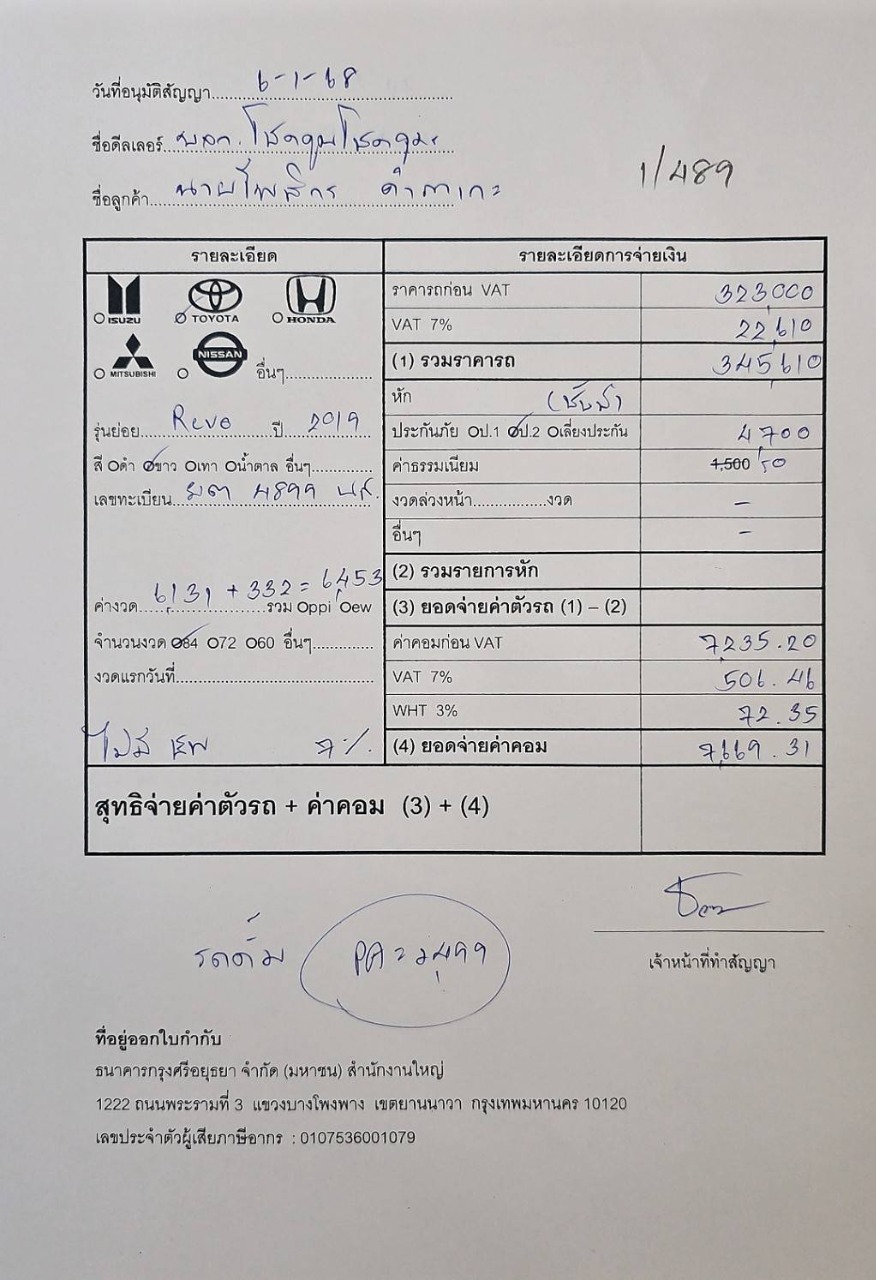 วันที่อนุมัติสัญญา 6-1-68
ชื่อดีลเลอร์ บจก. โชคคูณโชคคูณ
1/489
ชื่อลูกค้า นายไพสิฐ
รายละเอียด
รายละเอียดการจ่ายเงิน
ISUZU TOYOTA HONDA
ราคารถก่อน VAT 323,000
VAT 7% 22,610
MITSUBISHI NISSAN อื่นๆ
(1) รวมราคารถ 345,610
หัก
รุ่นย่อย Revo ปี 2019
ประกันภัย Oป.1 Oป.2 Oเลี่ยงประกัน 4,700
สี Oดำ Oขาว Oเทา Oน้ำตาล อื่นๆ
ค่าธรรมเนียม 4,500 50
เลขทะเบียน 4899
งวดล่วงหน้า งวด -
อื่นๆ -
(2) รวมรายการหัก
ค่างวด 6,131 + 332 = 6,453 รวม Oppi Oew
(3) ยอดจ่ายค่าตัวรถ (1) – (2)
จำนวนงวด O84 O72 O60 อื่นๆ
ค่าคอมก่อน VAT 7,235.20
งวดแรกวันที่
VAT 7% 506.46
WHT 3% 72.35
ไม่มี 7%.
(4) ยอดจ่ายค่าคอม 7,669.31
สุทธิจ่ายค่าตัวรถ + ค่าคอม (3) + (4)
รถดั้ม PA =
เจ้าหน้าที่ทำสัญญา
ที่อยู่ออกใบกำกับ
ธนาคารกรุงศรีอยุธยา จำกัด (มหาชน) สำนักงานใหญ่
1222 ถนนพระรามที่ 3 แขวงบางโพงพาง เขตยานนาวา กรุงเทพมหานคร 10120
เลขประจำตัวผู้เสียภาษีอากร : 0107536001079